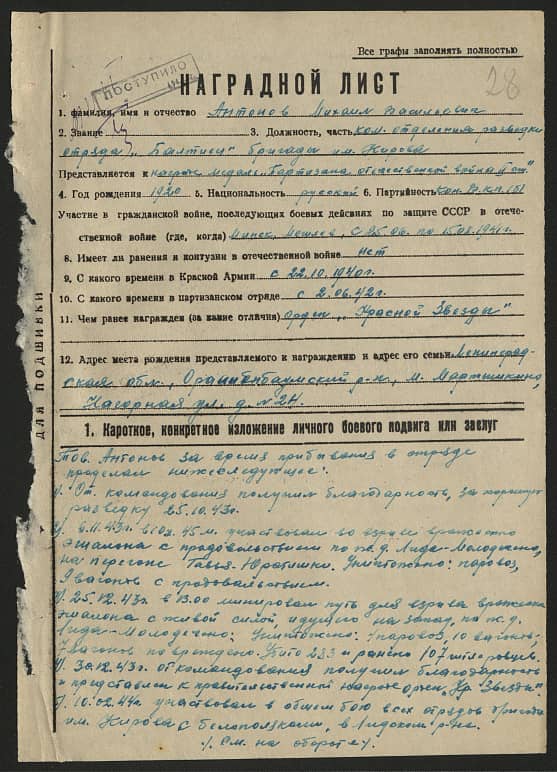 Все графы заполнять полностью
ПОСТУПИЛО
28
НАГРАДНОЙ ЛИСТ
1. фамилия, имя и отчество Антонов Михаил Васильевич
2. Звание 3. Должность, часть ком. отделения разведки
отряда „Балтиец" бригады им. Кирова
Представляется к награде медаль „Партизана отечественной войны II ст"
4. Год рождения 1920 5. Национальность русский 6. Партийность кан. ВКП(б)
Участие в гражданской войне, последующих боевых действиях по защите СССР в отече-
ственной войне (где, когда) Минск, с 25.06. по 15.08.1941г.
8. Имеет ли ранения и контузии в отечественной войне нет
9. С какого времени в Красной Армии с 22.10.1940г.
10. С какого времени в партизанском отряде с 2.06.42г.
11. Чем ранее награжден (за какие отличия) орден „Красной Звезды"
12. Адрес места рождения представляемого к награждению и адрес его семьи Ленинград-
ская обл., Ораниенбаумский р-н, м. Мартышкино,
Нагорная ул. д. №24.
ДЛЯ ПОДШИВКИ
1. Короткое, конкретное изложение личного боевого подвига или заслуг
Тов. Антонов за время прибывания в отряде
проделал нижеследующее:
От командования получил благодарность, за хорошую
разведку 25.10.43г.
в 10ч. 45м. участвовал во взрыве вражеского
эшалона с продовольствием по ж.д. Лида-Молодечно,
на перегоне Гавья-Юратишки. Уничтожено: паровоз,
9 вагонов с продовольствием.
25.12.43г. в 13.00 минировал путь для взрыва вражеского
эшалона с живой силой, идущего на запад, по ж.д.
Лида-Молодечно: Уничтожено: 1 паровоз, 10 вагонов,
7 вагонов повреждено. Убито 233 и ранено 107 гитлеровцев.
30.12.43г. от командования получил благодарность
и представлен к правительственной награде орден „Кр. Звезды".
10.02.44г. участвовал в общем бою всех отрядов бригады
им. Кирова с белополяками, в Лидском р-не.
См. на обороте